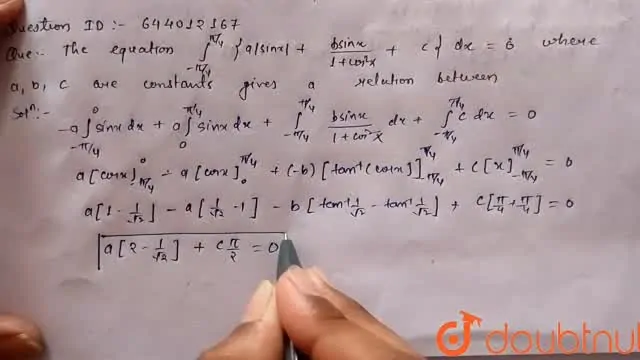 Question ID :- 644012167
Que:- The equation ∫_{-π/4}^{π/4} { a|sinx| + bsinx/(1+cos²x) + c } dx = 0 where
a, b, c are constants gives a relation between
Solⁿ:-
-a∫_{-π/4}^{0} sinx dx + a∫_{0}^{π/4} sinx dx + ∫_{-π/4}^{+π/4} bsinx/(1+cos²x) dx + ∫_{-π/4}^{π/4} c dx = 0
a[cosx]_{-π/4}^{0} - a[cosx]_{0}^{π/4} + (-b)[tan⁻¹(cosx)]_{-π/4}^{π/4} + c[x]_{-π/4}^{π/4} = 0
a[1 - 1/√2] - a[1/√2 - 1] - b[tan⁻¹ 1/√2 - tan⁻¹ 1/√2] + c[π/4 + π/4] = 0
a[2 - 1/√2] + c π/2 = 0
doubtnut